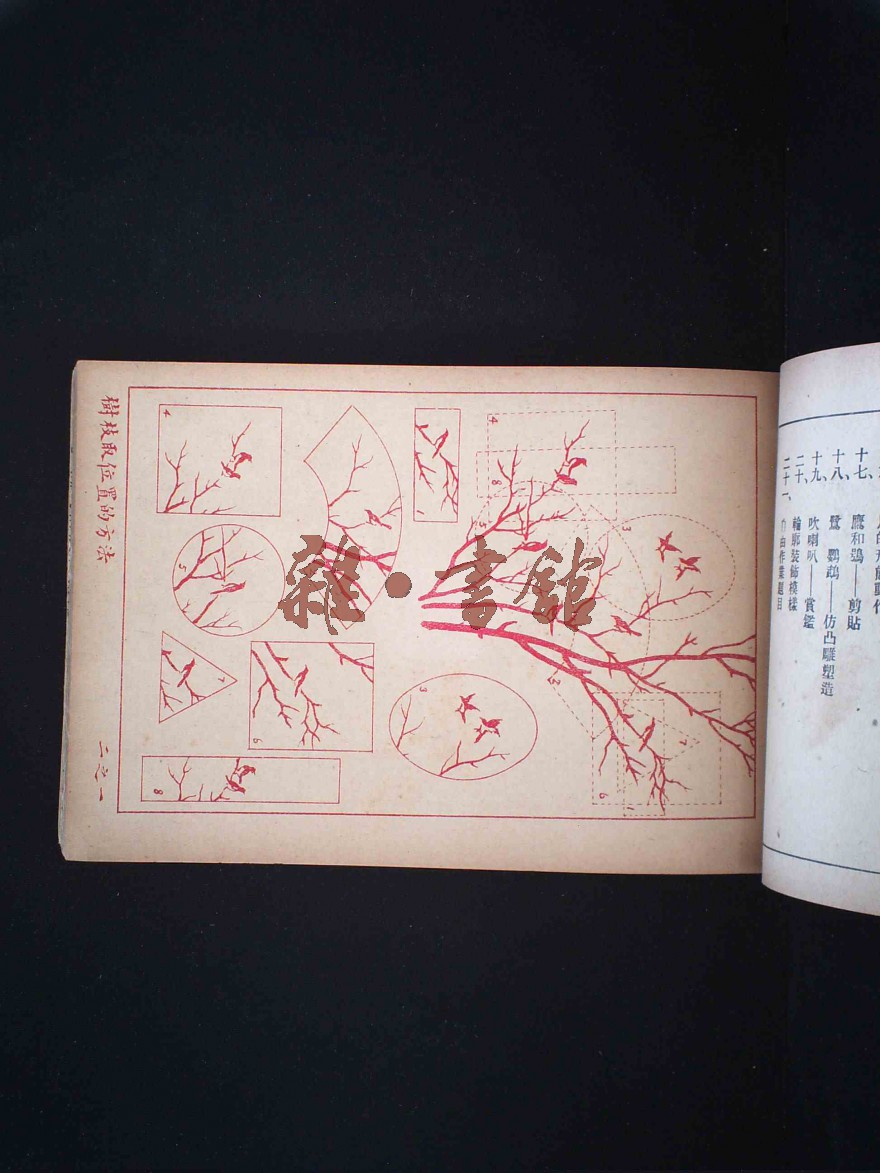 十七、鷹和鴞——剪貼
十八、鷺 鸚鵡——仿凸雕塑造
十九、吹喇叭——賞鑑
二十、輪廓裝飾模樣
二十一、自由作業題目
4
8
5
3
2
7
6
1
1
2
3
4
5
6
7
8
樹枝取位置的方法
二之一
雜·書館